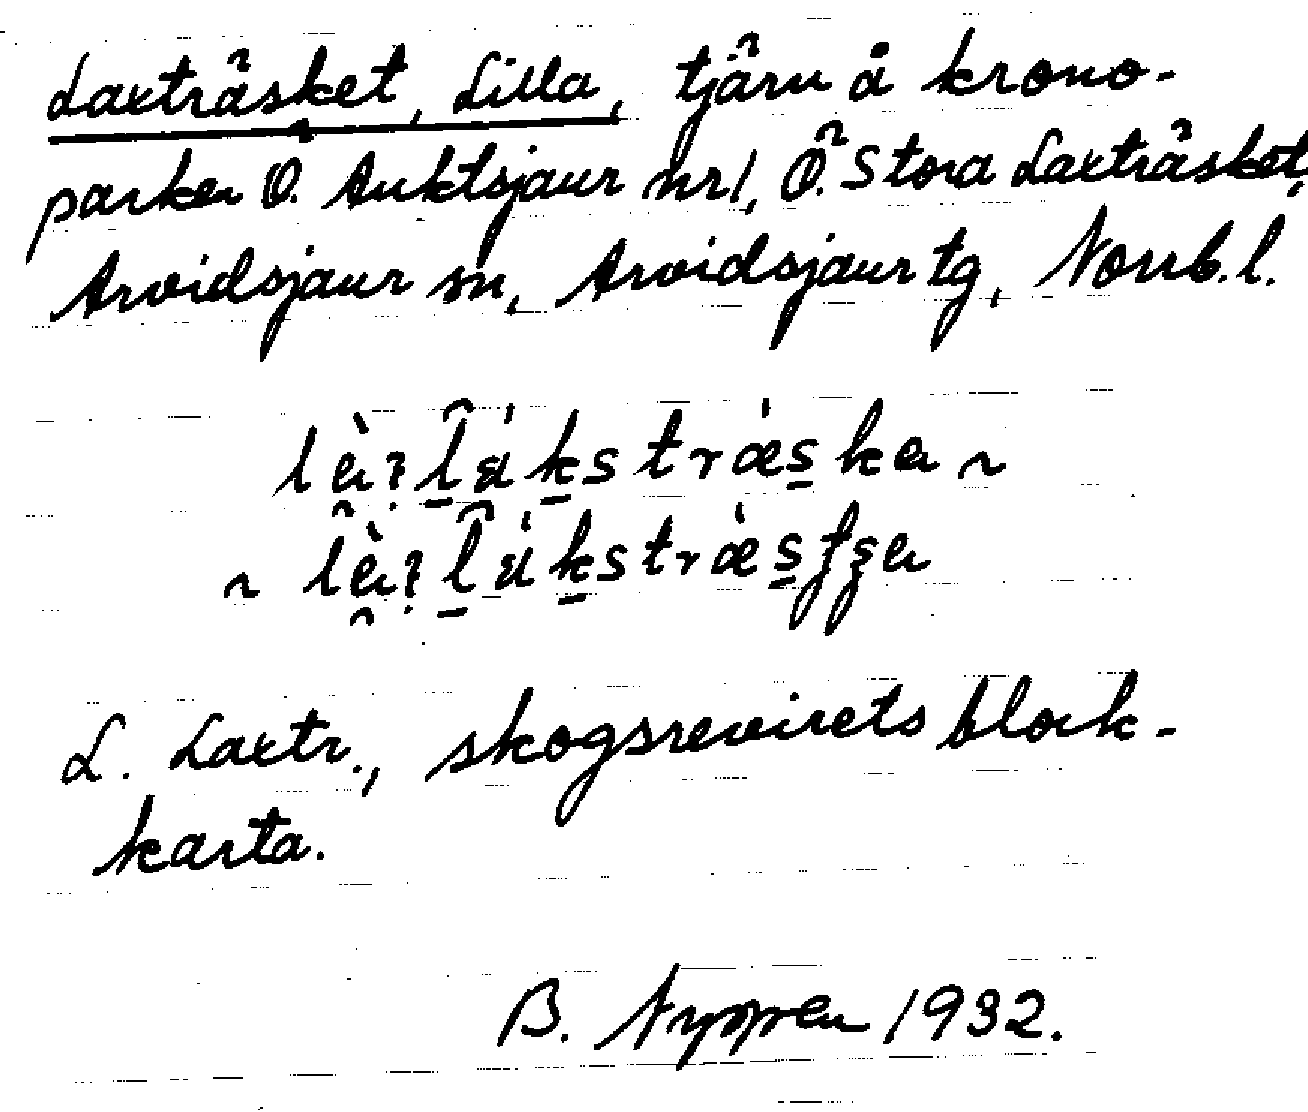 Laxträsket, Lilla, tjärn å krono-
parken Ö. Auktsjaur nr 1, Ö. Stora Laxträsket,
Arvidsjaur sn, Arvidsjaur tg, Norrb. l.
L. Laxtr., skogsrevirets block-
karta.
B. Nyppen 1932.